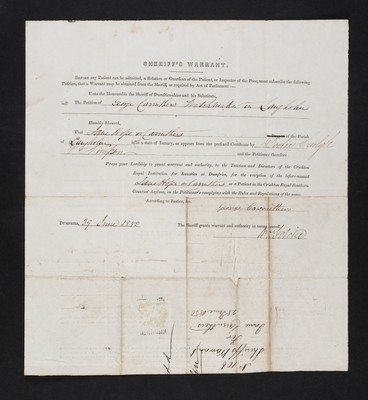 SHERIFF'S WARRANT.
BEFORE any Patient can be admitted, a Relative or Guardian of the Patient, or Inspector of the Poor, must subscribe the following
Petition, that a Warrant may be obtained from the Sheriff, as required by Act of Parliament:—
Unto the Honourable the Sheriff of Dumfries-shire and his Substitute,
The Petition of George Carruthers Watchmaker in Langholm
Humbly Sheweth,
That Jane Hope or Carruthers of the Parish
Langholm in a state of Lunacy, as appears from the prefixed Certificate by Doctor
and the Petitioner therefore
Prays your Lordship to grant warrant and authority, to the Trustees and Directors of the Crichton
Royal Institution for Lunatics at Dumfries, for the reception of the before-named
Jane Hope or Carruthers, as a Patient in the Crichton Royal Southern
Counties' Asylum, on the Petitioner's complying with the Rules and Regulations of the same.
According to Justice, &c.
George Carruthers
DUMFRIES, 29 June 1850 The Sheriff grants warrant and authority as being craved.
Sheriff's Warrant
For
Jane Carruthers
28 June 1850